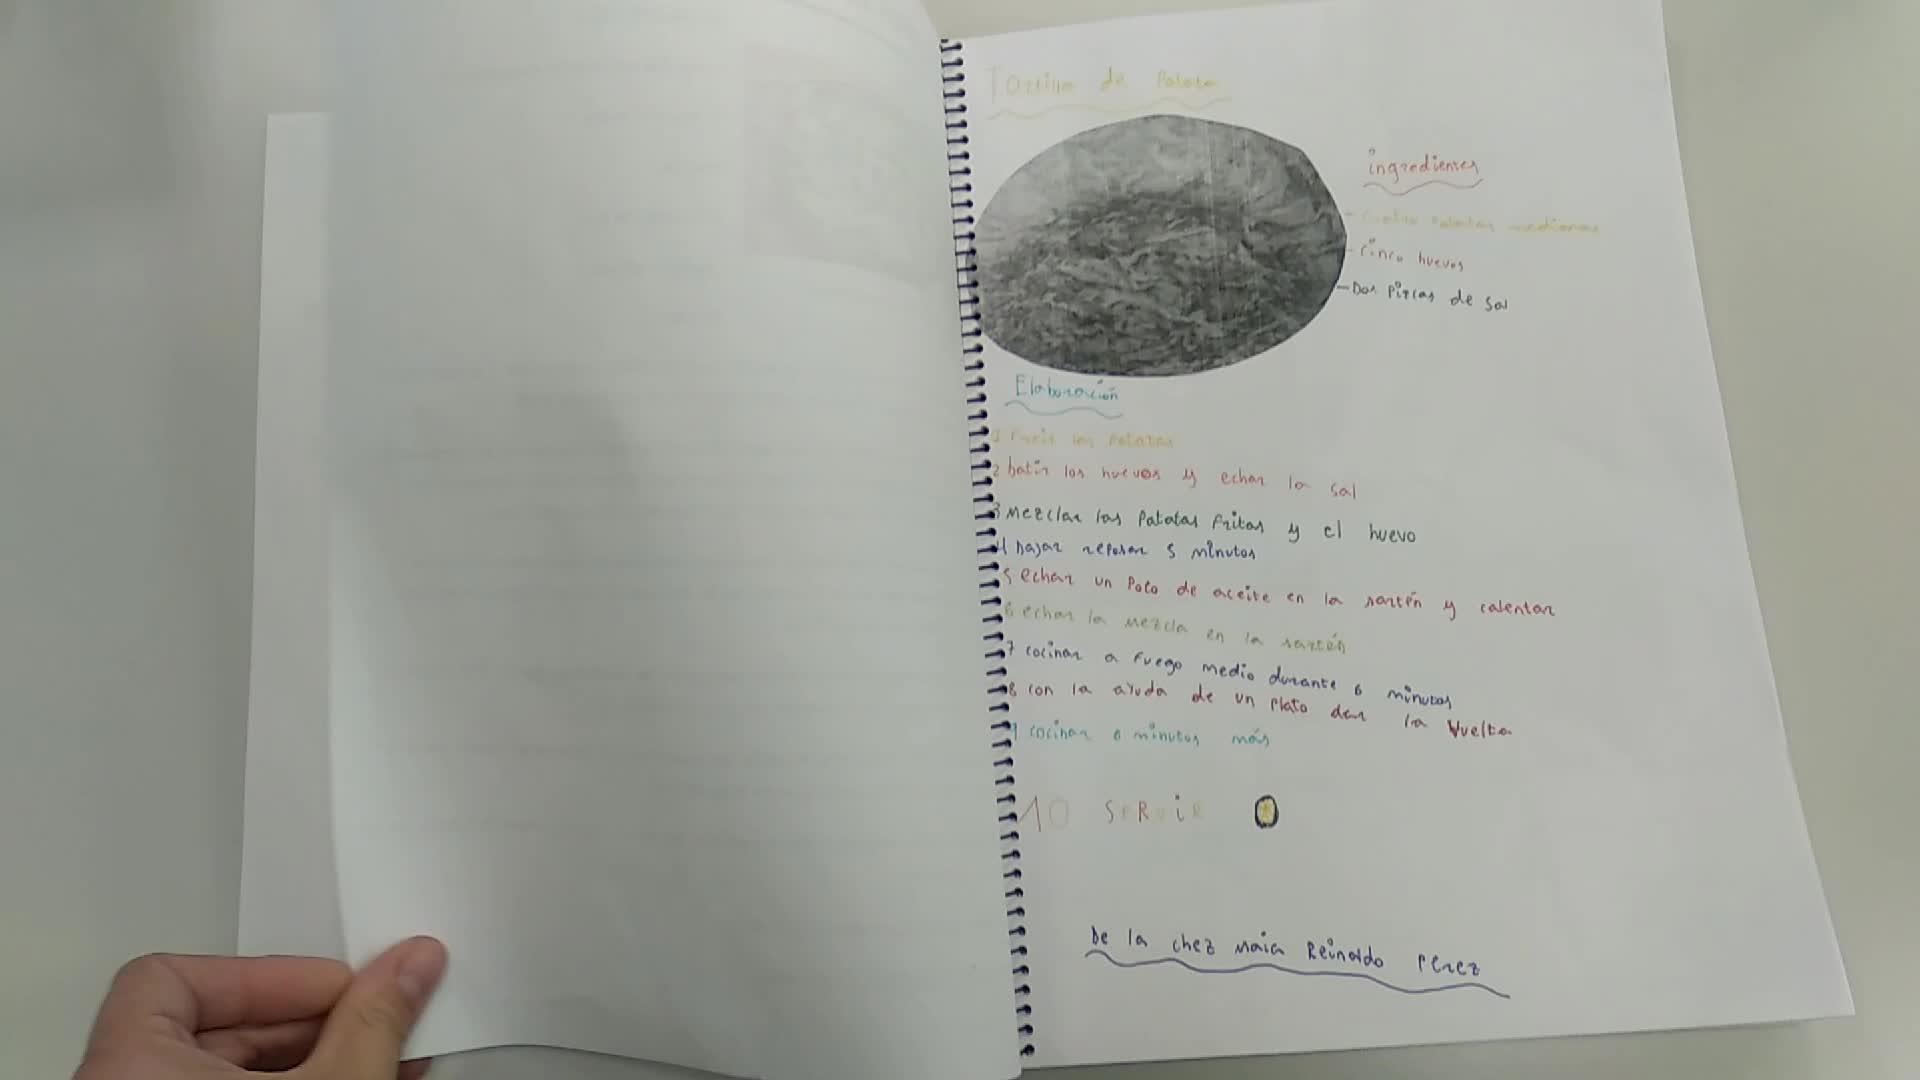 Tortilla de Patata
ingredientes
- Cuatro Patatas medianas
- Cinco huevos
- Dos Pizcas de Sal
Elaboración
1 Freír las Patatas
2 batir los huevos y echar la sal
3 Mezclar las Patatas Fritas y el huevo
4 Dajar reposar 5 minutos
5 echar un Poco de aceite en la sartén y calentar
6 echar la mezcla en la sartén
7 cocinar a Fuego medio durante 6 minutos
8 con la ayuda de un Plato dar la Vuelta
9 cocinar 6 minutos más
10 SERViR
De la chez Maia Reinaldo Perez